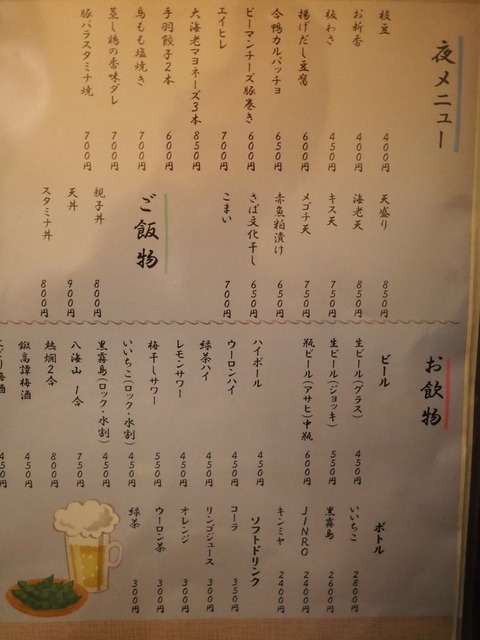 夜メニュー
枝豆 400円
お新香 400円
板わさ 450円
揚げだし豆腐 600円
合鴨カルパッチョ 650円
ピーマンチーズ豚巻き 600円
エイヒレ 700円
大海老マヨネーズ3本 850円
手羽餃子2本 600円
鳥もも塩焼き 700円
蒸し鶏の香味ダレ 700円
豚バラスタミナ焼 700円
天盛り 850円
海老天 850円
キス天 750円
メゴチ天 750円
赤魚粕漬け 650円
さば文化干し 650円
こまい 700円
ご飯物
親子丼 800円
天丼 900円
スタミナ丼 800円
お飲物
ビール
生ビール(グラス) 450円
生ビール(ジョッキ) 550円
瓶ビール(アサヒ)中瓶 600円
ハイボール 450円
ウーロンハイ 450円
緑茶ハイ 450円
レモンサワー 450円
梅干しサワー 550円
いいちこ(ロック・水割) 450円
黒霧島(ロック・水割) 450円
八海山 1合 750円
熱燗2合 800円
鍛高譚梅酒 450円
梅酒 450円
ボトル
いいちこ 2800円
黒霧島 2600円
JINRO 2400円
キンミヤ 2400円
ソフトドリンク
コーラ 350円
リンゴジュース 300円
オレンジ 300円
ウーロン茶 300円
緑茶 300円